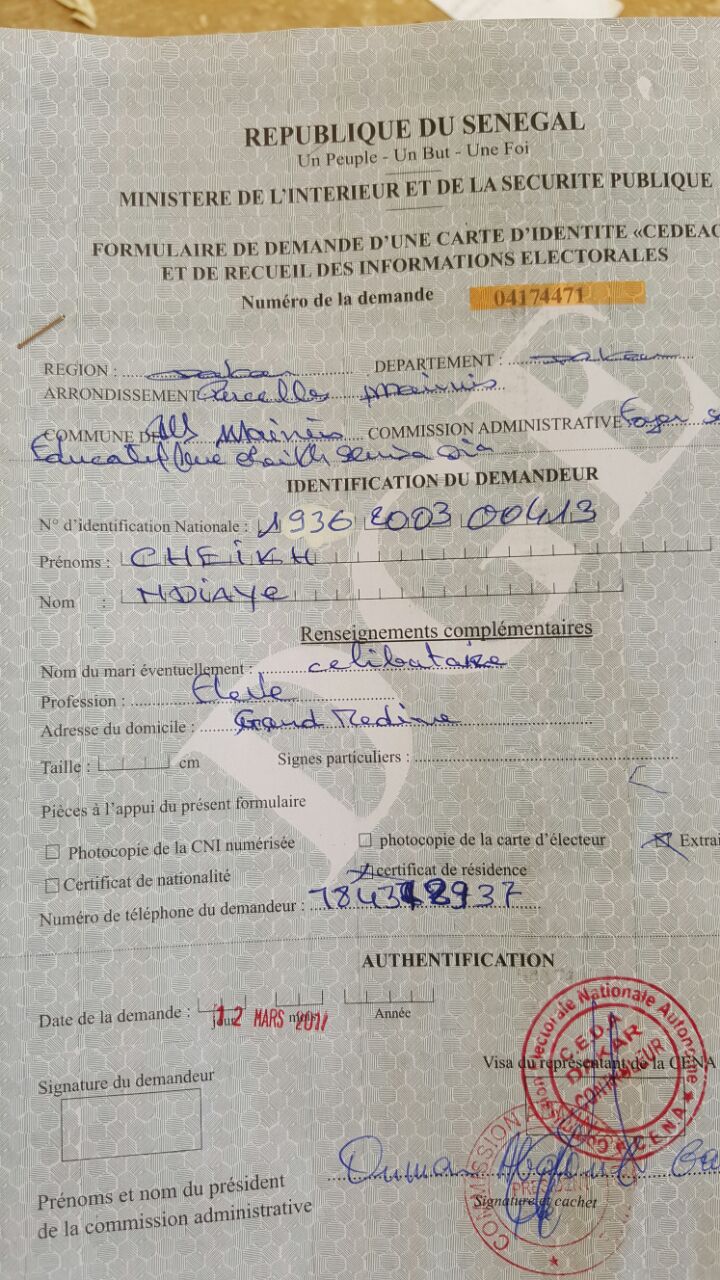 REPUBLIQUE DU SENEGAL
Un Peuple - Un But - Une Foi
MINISTERE DE L'INTERIEUR ET DE LA SECURITE PUBLIQUE
FORMULAIRE DE DEMANDE D'UNE CARTE D'IDENTITE «CEDEAO
ET DE RECUEIL DES INFORMATIONS ELECTORALES
Numéro de la demande 04174471
REGION : Dakar DEPARTEMENT : Dakar
ARRONDISSEMENT Parcelles
COMMUNE DE COMMISSION ADMINISTRATIVE Foyer
Educatif
IDENTIFICATION DU DEMANDEUR
N° d'identification Nationale : 1936 2003 00413
Prénoms : CHEIKH
Nom : NDIAYE
Renseignements complémentaires
Nom du mari éventuellement : celibataire
Profession : Eleve
Adresse du domicile : Grand Medine
Taille : cm Signes particuliers :
Pièces à l'appui du présent formulaire
Photocopie de la CNI numérisée photocopie de la carte d'électeur Extrai
Certificat de nationalité certificat de résidence
Numéro de téléphone du demandeur :
AUTHENTIFICATION
Date de la demande : 12 MARS 2017
jour mois Année
Signature du demandeur
Visa du représentant de la CENA
Commission Electorale Nationale Autonome
C.E.D.A
DAKAR
CONTROLEUR
C.E.N.A
Prénoms et nom du président
de la commission administrative
COMMISSION
PRESIDENT
Signature et cachet
DGE